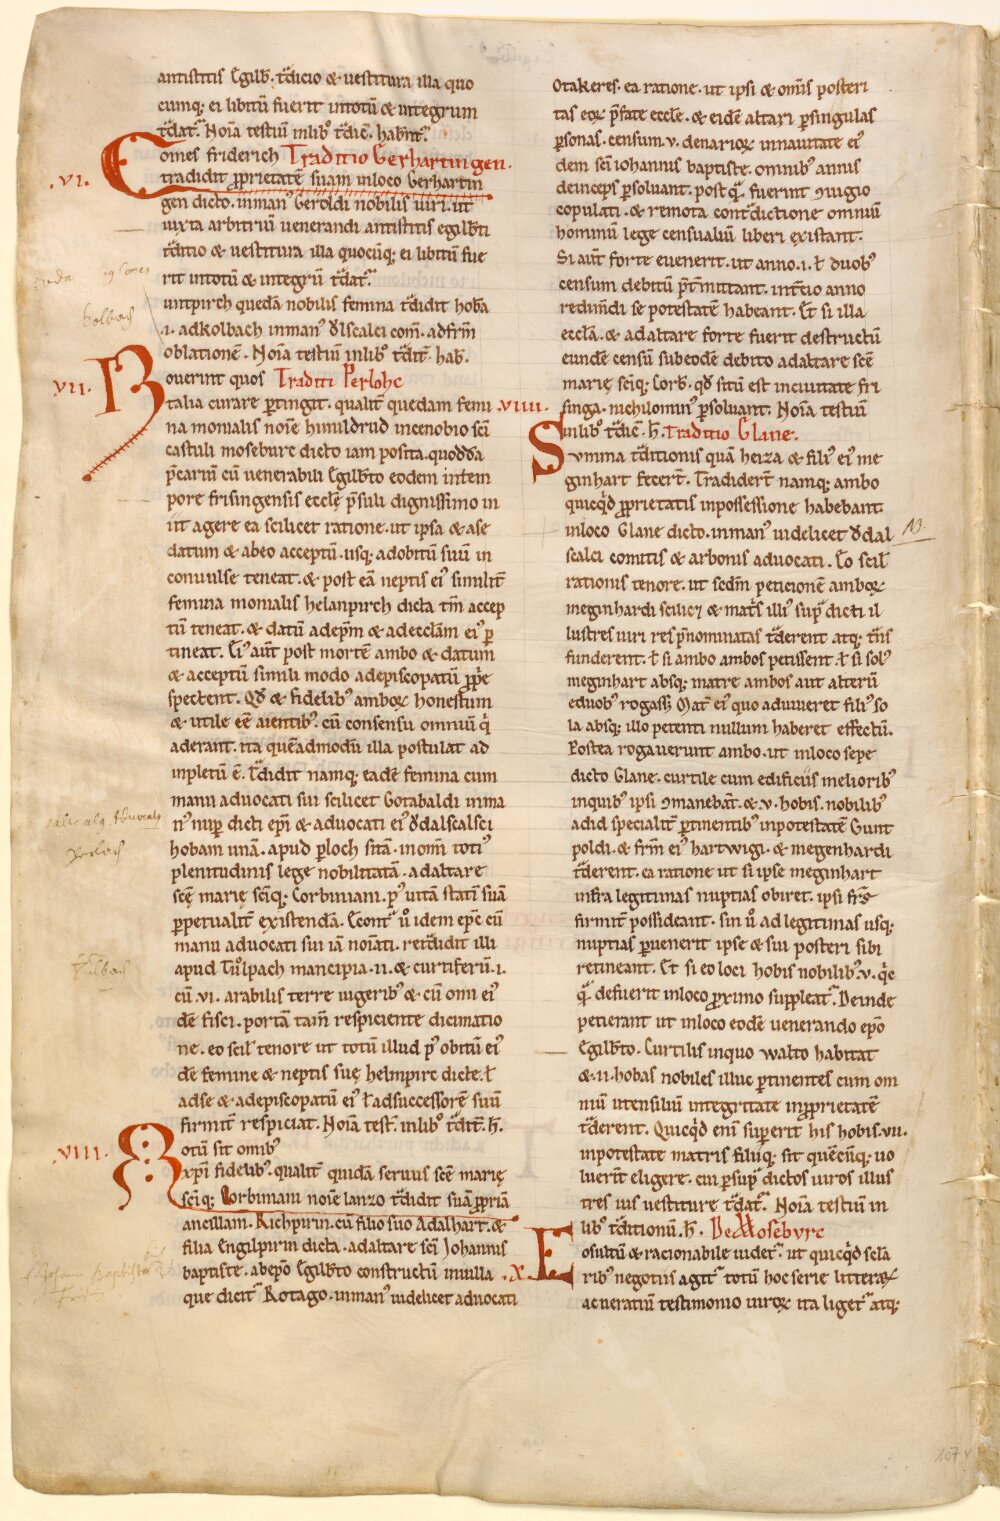 antistitis Egilb̄. t̄dicio & uestitura illa quo
cumq; ei libitū fuerit intotū & integrum
t̄dat᷑. Noīa testiū inlibꝰ t̄dic̄. habn̄t᷑.
.VI. Comes friderich Traditio Gerhartingen.
tradidit ꝓprietatē suam inloco Gerhartin
gen dicto. inmanꝰ Geroldi nobilis uiri. ut
iuxta arbitriū uenerandi antistitis egilb̄ti
t̄ditio & uestitura illa quocūq; ei libitū fue
rit intotū & integrū t̄dat᷑.
uuitpirch quedā nobilis femina t̄didit hobā
.i. adkolbach inmanꝰ ꝺlscalci com̄. adfrm̄
kolbach
oblationē. Noīa testiū inlibꝰ t̄dit̄. hab̄.
.VII. Nouerint quos Traditi Perlohc
talia curare ꝑtingit. qualit̄ quedam femi
na monialis noīe himildrud incenobio sc̄i
castuli moseburc dicto iam posita. quodda
p̄cariū cū uenerabili Egilb̄to eodem intem
pore frisingensis eccl̄ę p̄suli dignissimo in
iit agere ea scilicet ratione. ut ipsa & a se
datum & abeo acceptū. usq; adobitū suū in
conuulse teneat. & post eā neptis eiꝰ similit̄
femina monialis helanpirch dicta tm̄ accep
tū teneat. & datū adep̄m & adeccl̄am eiꝰ ꝑ
tineat. Eiꝰ aūt post mortē ambo & datum
& acceptū simili modo adepiscopatū ꝓp̄e
spectent. Qđ & fidelibꝰ amboꝝ honestum
& utile eē aientibꝰ. cū consensu omniū q̄
aderant. ita quēadmodū illa postulat ad
inpletū ē. T̄didit namq; eadē femina cum
manu advocati sui scilicet Gotabaldi inma
nꝰ nuꝑ dicti ep̄i & advocati eiꝰ ꝺdalscalsci
hobam unā. apud ꝑloch sitā. in om̄i totiꝰ
perlach
plenitudinis lege nobilitatā. adaltare
sc̄ę marię sc̄iq; Corbiniani. pꝰ uitā statī suā
ꝑpetualit̄ existendā. Econt᷑ ū idem ep̄c cū
manu advocati sui iā noīati. ret̄didit illi
apud Tůlpach mancipia .ii. & curtiferū .i.
cū .vi. arabilis terre iugeribꝰ & cū omi eiꝰ
dē fisci. portā tam̄ respiciente dicimatio
ne. eo scil̄ tenore ut totū illud pꝰ obitū eiꝰ
dē femine & neptis suę helmpirc dicte. ł
adse & adepiscopatū eiꝰ ł adsuccessorē suū
firmit̄ respiciat. Noīa test̄. inlibꝰ t̄dit̄. h̄.
.VIII. Notū sit omibꝰ
xp̄i fidelibꝰ. qualit̄ quidā seruus sc̄e marię
sc̄iq; Corbiniani noīe lanzo t̄didit suā ꝓpriā
ancillam. Richpirin. cū filio suo Adalhart. &
filia Engilpirin dicta. adaltare sc̄i Johannis
baptiste. abep̄o Egilb̄to constructū inuilla
que dicit᷑ Rotago. inmanꝰ uidelicet advocati
Otakeres. ea ratione. ut ipsi & omīs posteri
tas eoꝝ p̄fate eccl̄e. & eidē altari ꝑsingulas
ꝑsonas. censum .v. denarioꝝ innauitate eiꝰ
dem sc̄i iohannis baptiste. omnibꝰ annis
deinceps ꝑsoluant. postq᷑. fuerint ꝯiugio
copulati. & remota cont᷑dictione omniū
hominū lege censualiū liberi existant.
Si aūt forte euenerit. ut anno .i. ł duobꝰ
censum debitū p̄t̄mittant. int̄cio anno
redim̄di se potestatē habeant. Et si illa
eccl̄a. & adaltare forte fuerit destructū
eundē censū subeodē debito adaltare sc̄e
marię sc̄iq; Corb̄. qđ sitū est inciuitate fri
.VIIII. singa. nichilominꝰ ꝑsoluant. Noīa testiū
inlibꝰ t̄dic̄. h̄. Traditio Glane.
Summa t̄ditionis quā heiza & filiꝰ eiꝰ me
ginhart fecert̄. Tradidert̄ namq; ambo
quicq̇d ꝓprietatis inpossessione habebant
inloco Glane dicto. inmanꝰ uidelicet ꝺdal
scalci comitis & arbonis advocati. Eo scil̄
rationis tenore. ut scd̄m peticionē amboꝝ
meginhardi scilicꝫ & mat᷑s illiꝰ sup᷑dicti il
lustres uiri res p̄nominatas t̄derent atq; t̄ns
funderent. ł si ambo ambos petissent. ł si solꝰ
meginhart absq; matre ambos aut alterū
eduobꝰ rogass&. Mat̄ eiꝰ quo adviueret filiꝰ so
la absq; illo petenti nullum haberet effectū.
Postea rogauerunt ambo. ut inloco sepe
dicto Glane. curtile cum edificiis melioribꝰ
inquibꝰ ipsi ꝯmanebāt. & .v. hobis. nobilibꝰ
adid specialit̄ ꝑtinentibꝰ inpotestatē Gunt
poldi. & fr̄m eiꝰ hartwigi. & megenhardi
t̄derent. ea ratione ut si ipse meginhart
infra legitimas nuptias obiret. ipsi fr̄s
firmit̄ possideant. sin ů ad legitimas usq;
nuptias ꝑuenerit ipse & sui posteri sibi
retineant. Et si eo loci hobis nobilibꝰ .v. q̄e
q᷑ defuerit inloco ꝓximo suppleat᷑. Deinde
petierant ut inloco eodē uenerando ep̄o
Egilb̄to. Curtilis inquo walto habitat
& .ii. hobas nobiles illuc ꝑtinentes cum om
niū utensiliū integritate inꝓprietatē
t̄derent. Quicq̇d enī suꝑerit his hobis .vii.
inpotestate matris filiiq; sit quēcūq; uo
luerīt eligere. cui ꝑsup᷑dictos uiros illius
tres ius uestiture t̄dat᷑. Noīa testiū in
libꝰ t̄ditionū. h̄. De Moseburc
.X. Eosultū & racionabile uidet᷑. ut quicq̇d sc̄la
ribꝰ negotiis agit᷑ totū hoc serie litteraꝝ
ac ueratiū testimonio uiroꝝ ita liget᷑ atq;
107 v